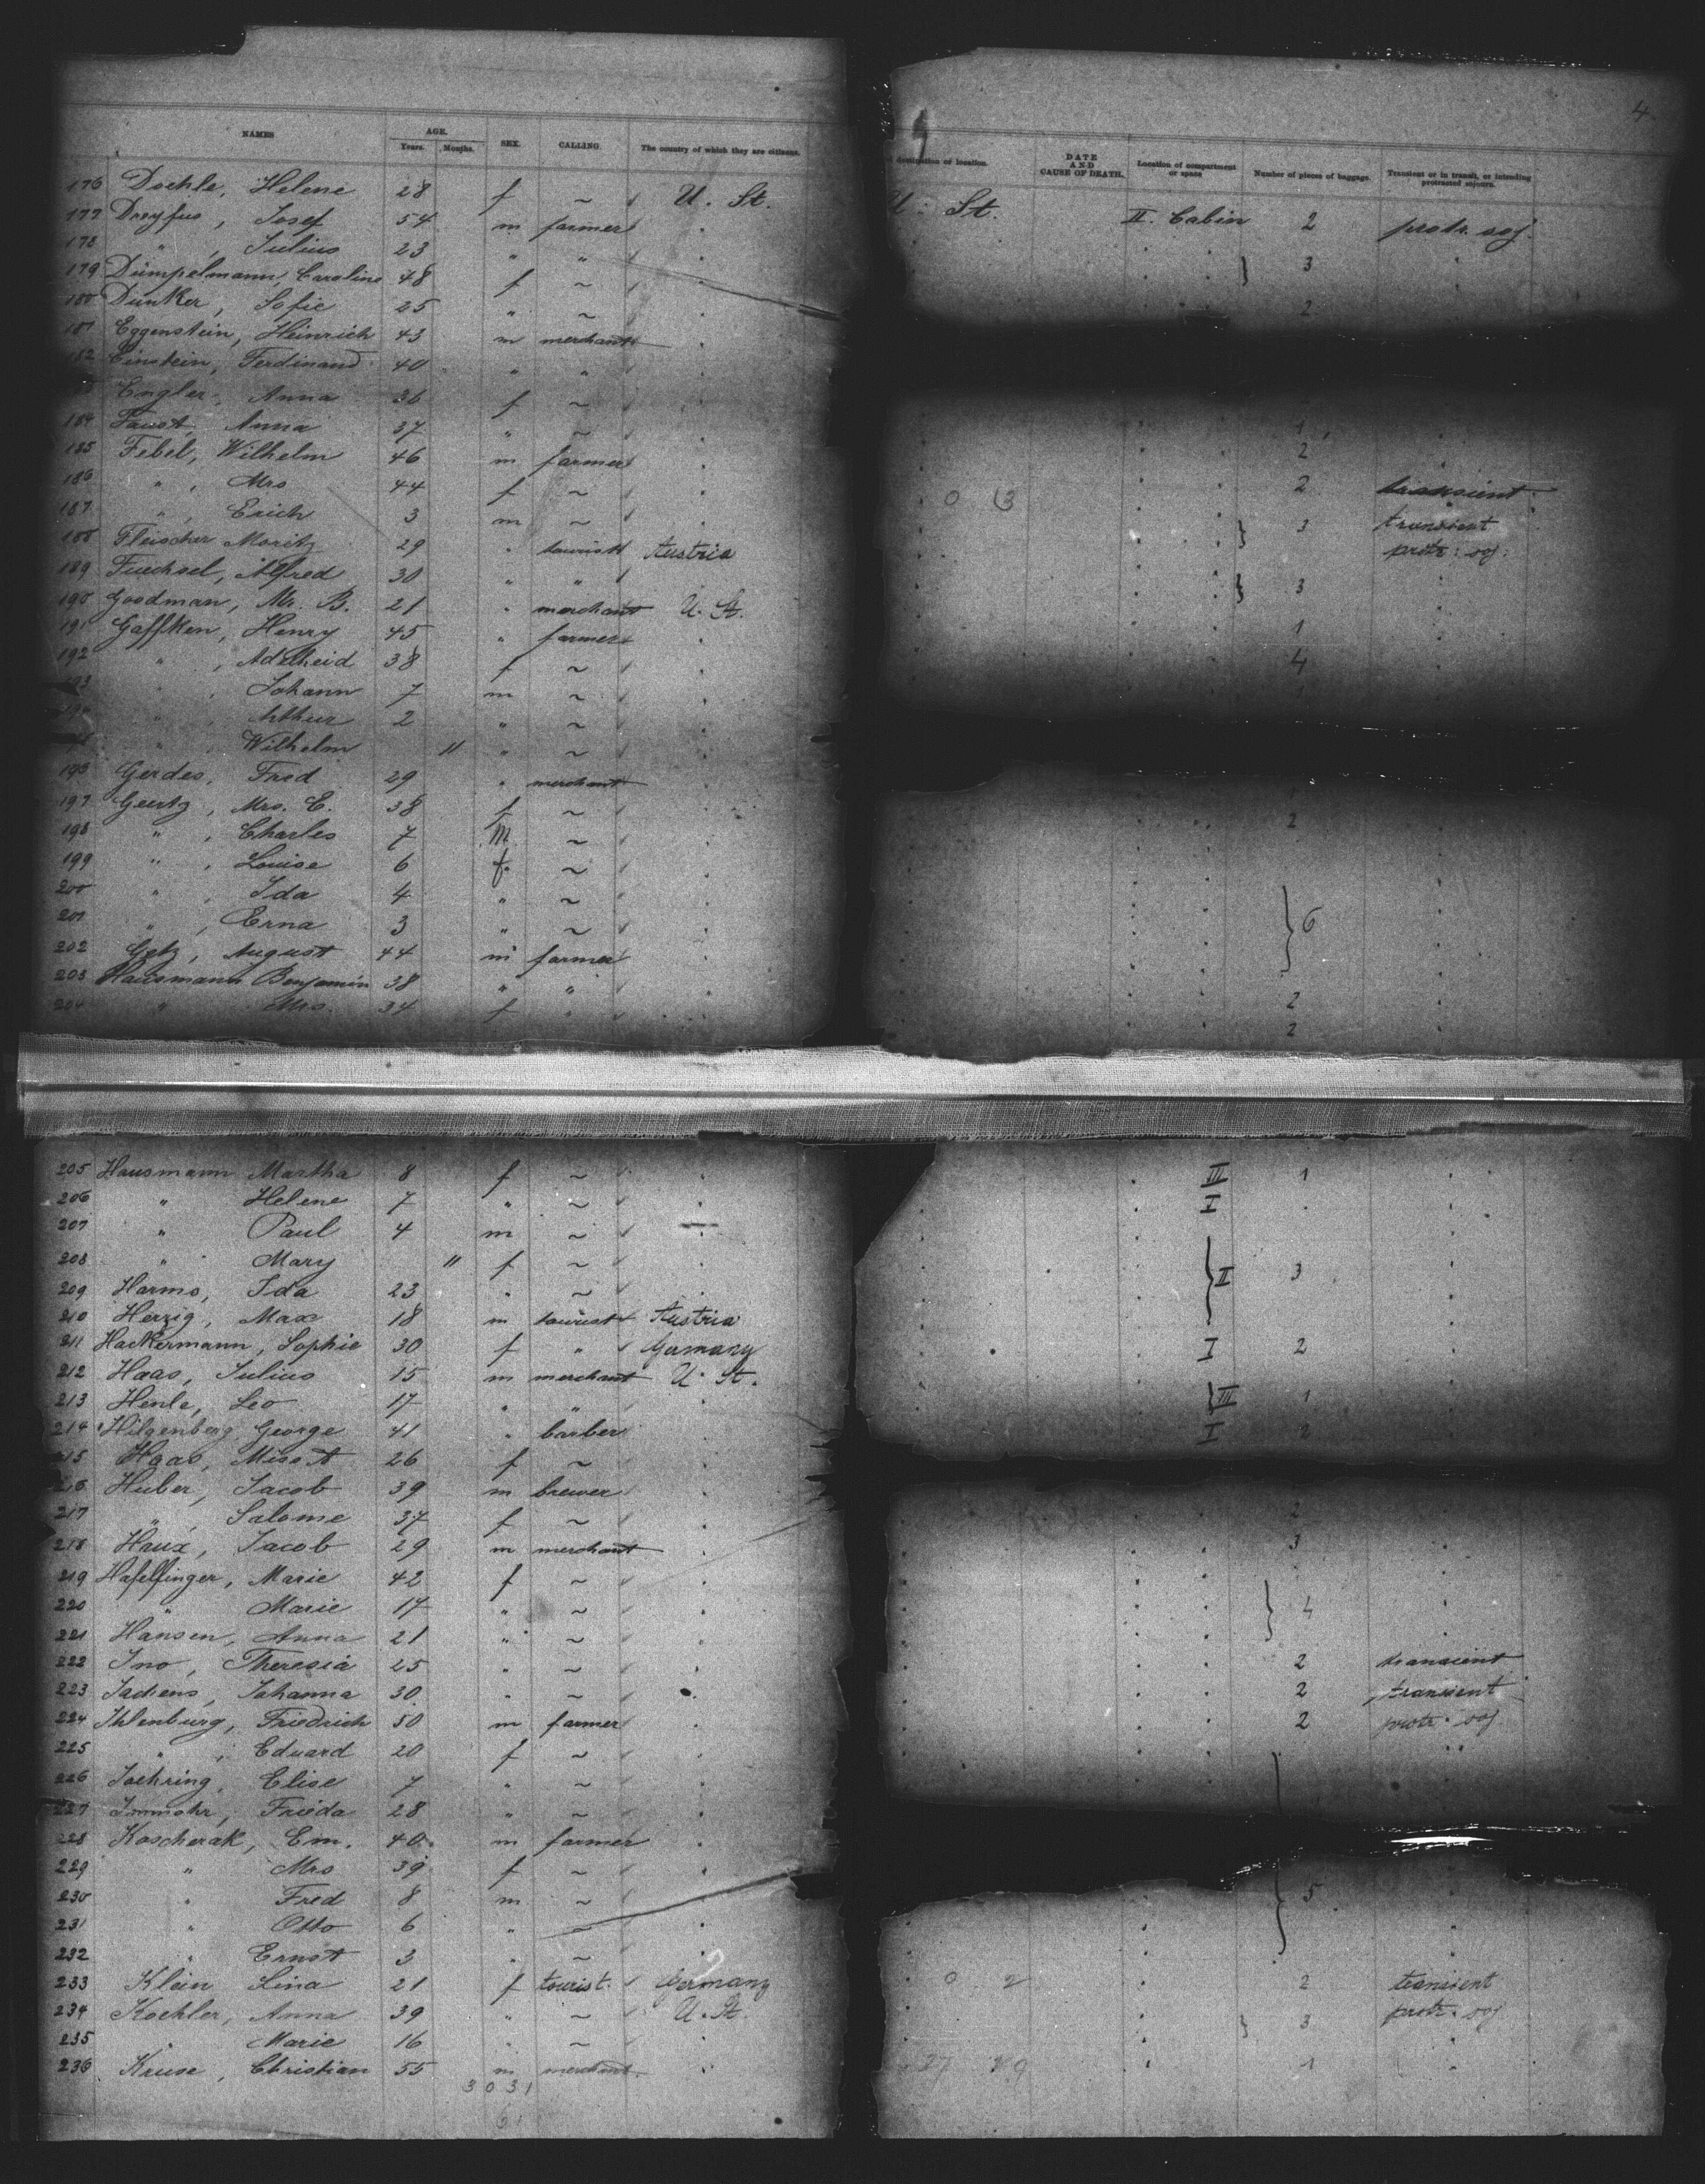 NAMES AGE. SEX. CALLING. The country of which they are citizens.
Years. Months.
176 Doehle, Helene 28 f ~ U. St.
177 Dreyfus, Josef 54 m farmer "
178 " , Julius 23 " " "
179 Dümpelmann, Caroline 48 f ~ "
180 Dunker, Sofie 25 " ~ "
181 Eggenstein, Heinrich 43 m merchant "
182 Einstein, Ferdinand 40 " " "
Engler, Anna 36 f ~ "
184 Faust, Anna 37 " ~ "
185 Febel, Wilhelm 46 m farmer "
186 " , Mrs 44 f ~ "
187 " , Erich 3 m ~ "
188 Fleischer Moritz 29 " tourist Austria
189 Fuechsel, Alfred 30 " " "
190 Goodman, Mr. B. 21 " merchant U. St.
191 Gaffken, Henry 45 " farmer "
192 " , Adelheid 38 f ~ "
193 " , Johann 7 m ~ "
194 " , Arthur 2 " ~ "
" , Wilhelm 11 " ~ "
196 Gerdes, Fred 29 " merchant "
197 Geertz, Mrs. E. 38 f ~ "
198 " , Charles 7 m ~ "
199 " , Louise 6 f. ~ "
200 " , Ida 4 " ~ "
201 " , Erna 3 " ~ "
202 Getz, August 44 m farmer "
203 Hausmann Benjamin 38 " " "
204 " Mrs. 34 f " "
205 Hausmann Martha 8 f ~ "
206 " Helene 7 " ~ "
207 " Paul 4 m ~ "
208 " Mary 11 f ~ "
209 Harms, Ida 23 " ~ "
210 Herzig, Max 18 m tourist Austria
211 Hackermann, Sophie 30 f " Germany
212 Haas, Julius 15 m merchant U. St.
213 Henle, Leo 17 " " "
214 Hilgenberg, George 41 " barber "
215 Haas, Miss A 26 f ~ "
216 Huber, Jacob 39 m brewer "
217 " , Salome 37 f ~ "
218 Haux, Jacob 29 m merchant "
219 Hafelfinger, Marie 42 f ~ "
220 " Marie 17 " ~ "
221 Hansen, Anna 21 " ~ "
222 Ino, Theresia 25 " ~ "
223 Jachens, Johanna 30 " ~ "
224 Ihlenburg, Friedrich 50 m farmer "
225 " , Eduard 20 f ~ "
226 Joehring, Elise 7 " ~ "
227 Immohr, Frieda 28 " ~ "
228 Koscherak, Em. 40 m farmer "
229 " Mrs 39 f ~ "
230 " Fred 8 m ~ "
231 " Otto 6 " ~ "
232 " Ernst 3 " ~ "
233 Klein Lina 21 f tourist. Germany
234 Koehler, Anna 39 " ~ U. St.
235 " Marie 16 " ~ "
236 Kruse, Christian 55 m merchant. "
3031
61
4.
destination or location. DATE AND CAUSE OF DEATH. Location of compartment or space Number of pieces of baggage. Transient or in transit, or intending protracted sojourn.
U. St. II. Cabin 2 protr. soj.
} 3 "
2
1
2
2 transient
0 13
} 3 transient
protr. soj.
} 3 "
1
4
1
2
} 6
2
2
III 1
I
} II 3
I 2
} III 1
I 2
2
3
} 4
2 transient
2 transient
2 protr. soj
} 5
0 2 2 transient
protr. soj
} 3
27 29 1